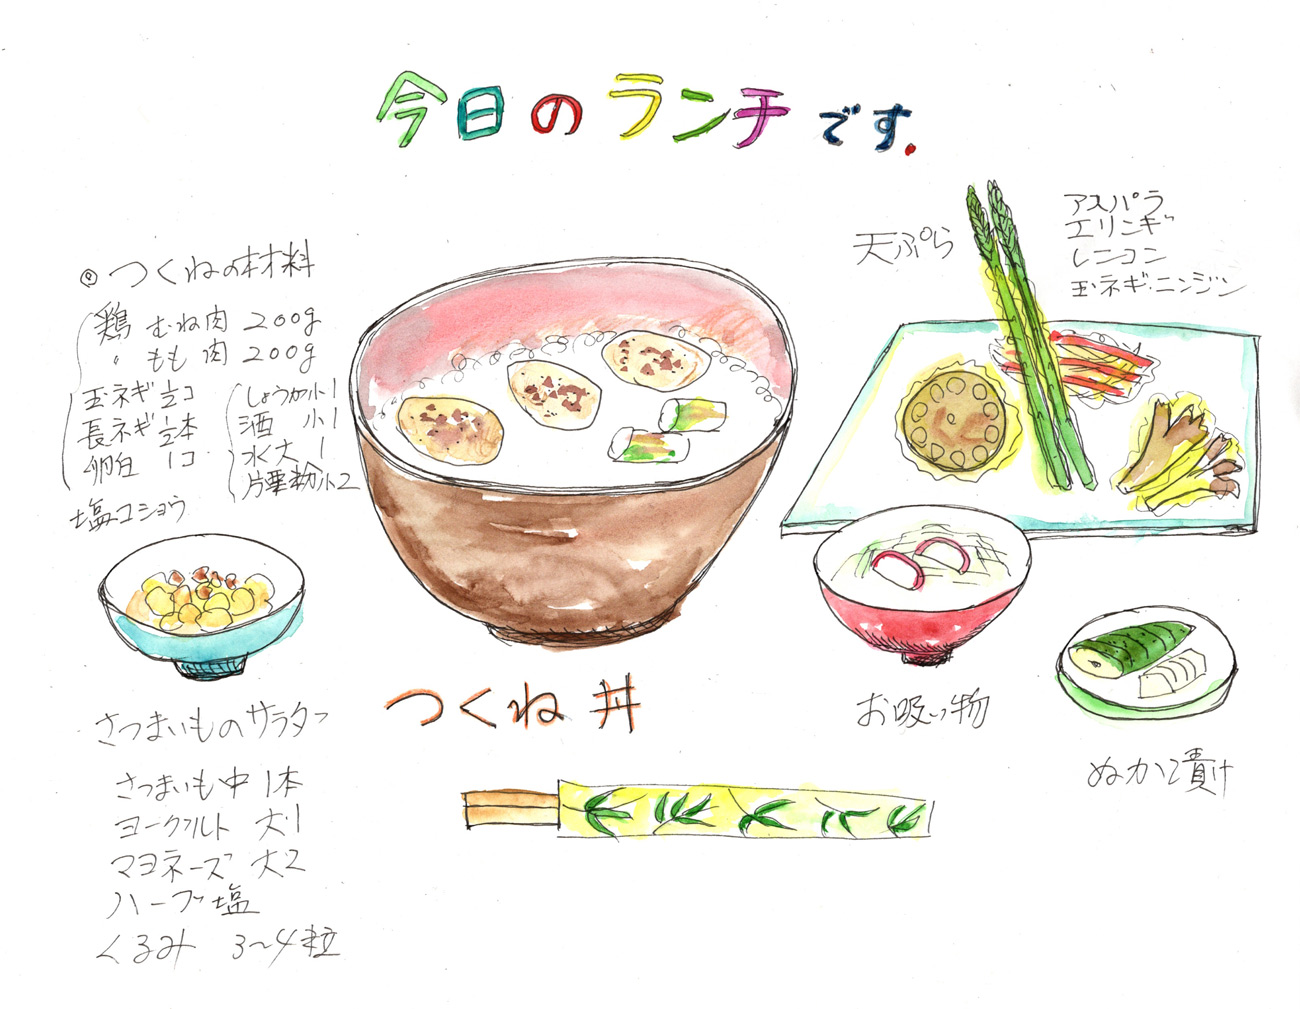 今日のランチです.
◎ つくねの材料
鶏 むね肉 200g
〃 もも肉 200g
玉ネギ ½コ
長ネギ ½本
卵白 1コ
塩コショウ
しょうが小1
酒 小1
水 大 1
片栗粉小2
天ぷら
アスパラ
エリンギ
レンコン
玉ネギ・ニンジン
さつまいものサラダ
さつまいも中 1本
ヨーグルト 大1
マヨネーズ 大2
ハーブ塩
くるみ 3〜4粒
つくね丼
お吸い物
ぬか漬け